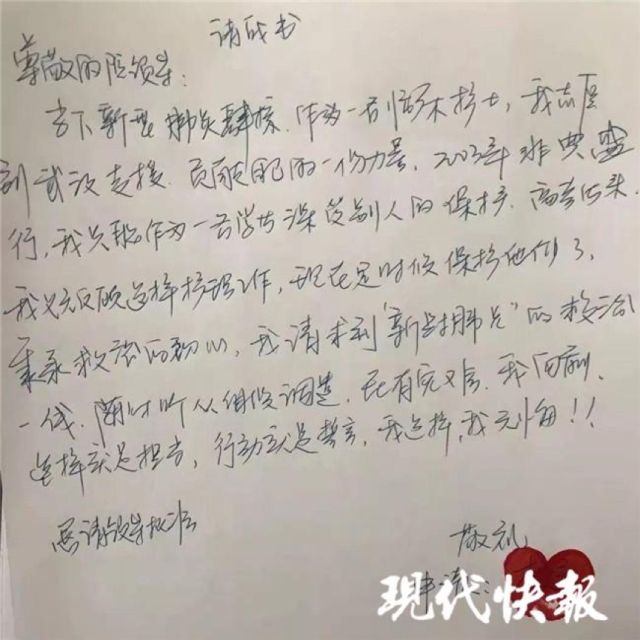 请战书
尊敬的院领导：
当下新型肺炎肆掠，作为一名临床护士，我志愿
到武汉支援，贡献自己的一份力量。2003年非典盛
行，我只能作为一名学生深受别人的保护，高考后来，
我义无反顾选择护理工作，现在是时候保护他们了。
秉承救治的初心，我请求到“新型肺炎”的救治
一线，随时听从组织调遣，若有完
选择就是担当，行动就是誓言，我选择，我无悔！！
恳请领导批准
敬礼
申请人：
现代快報